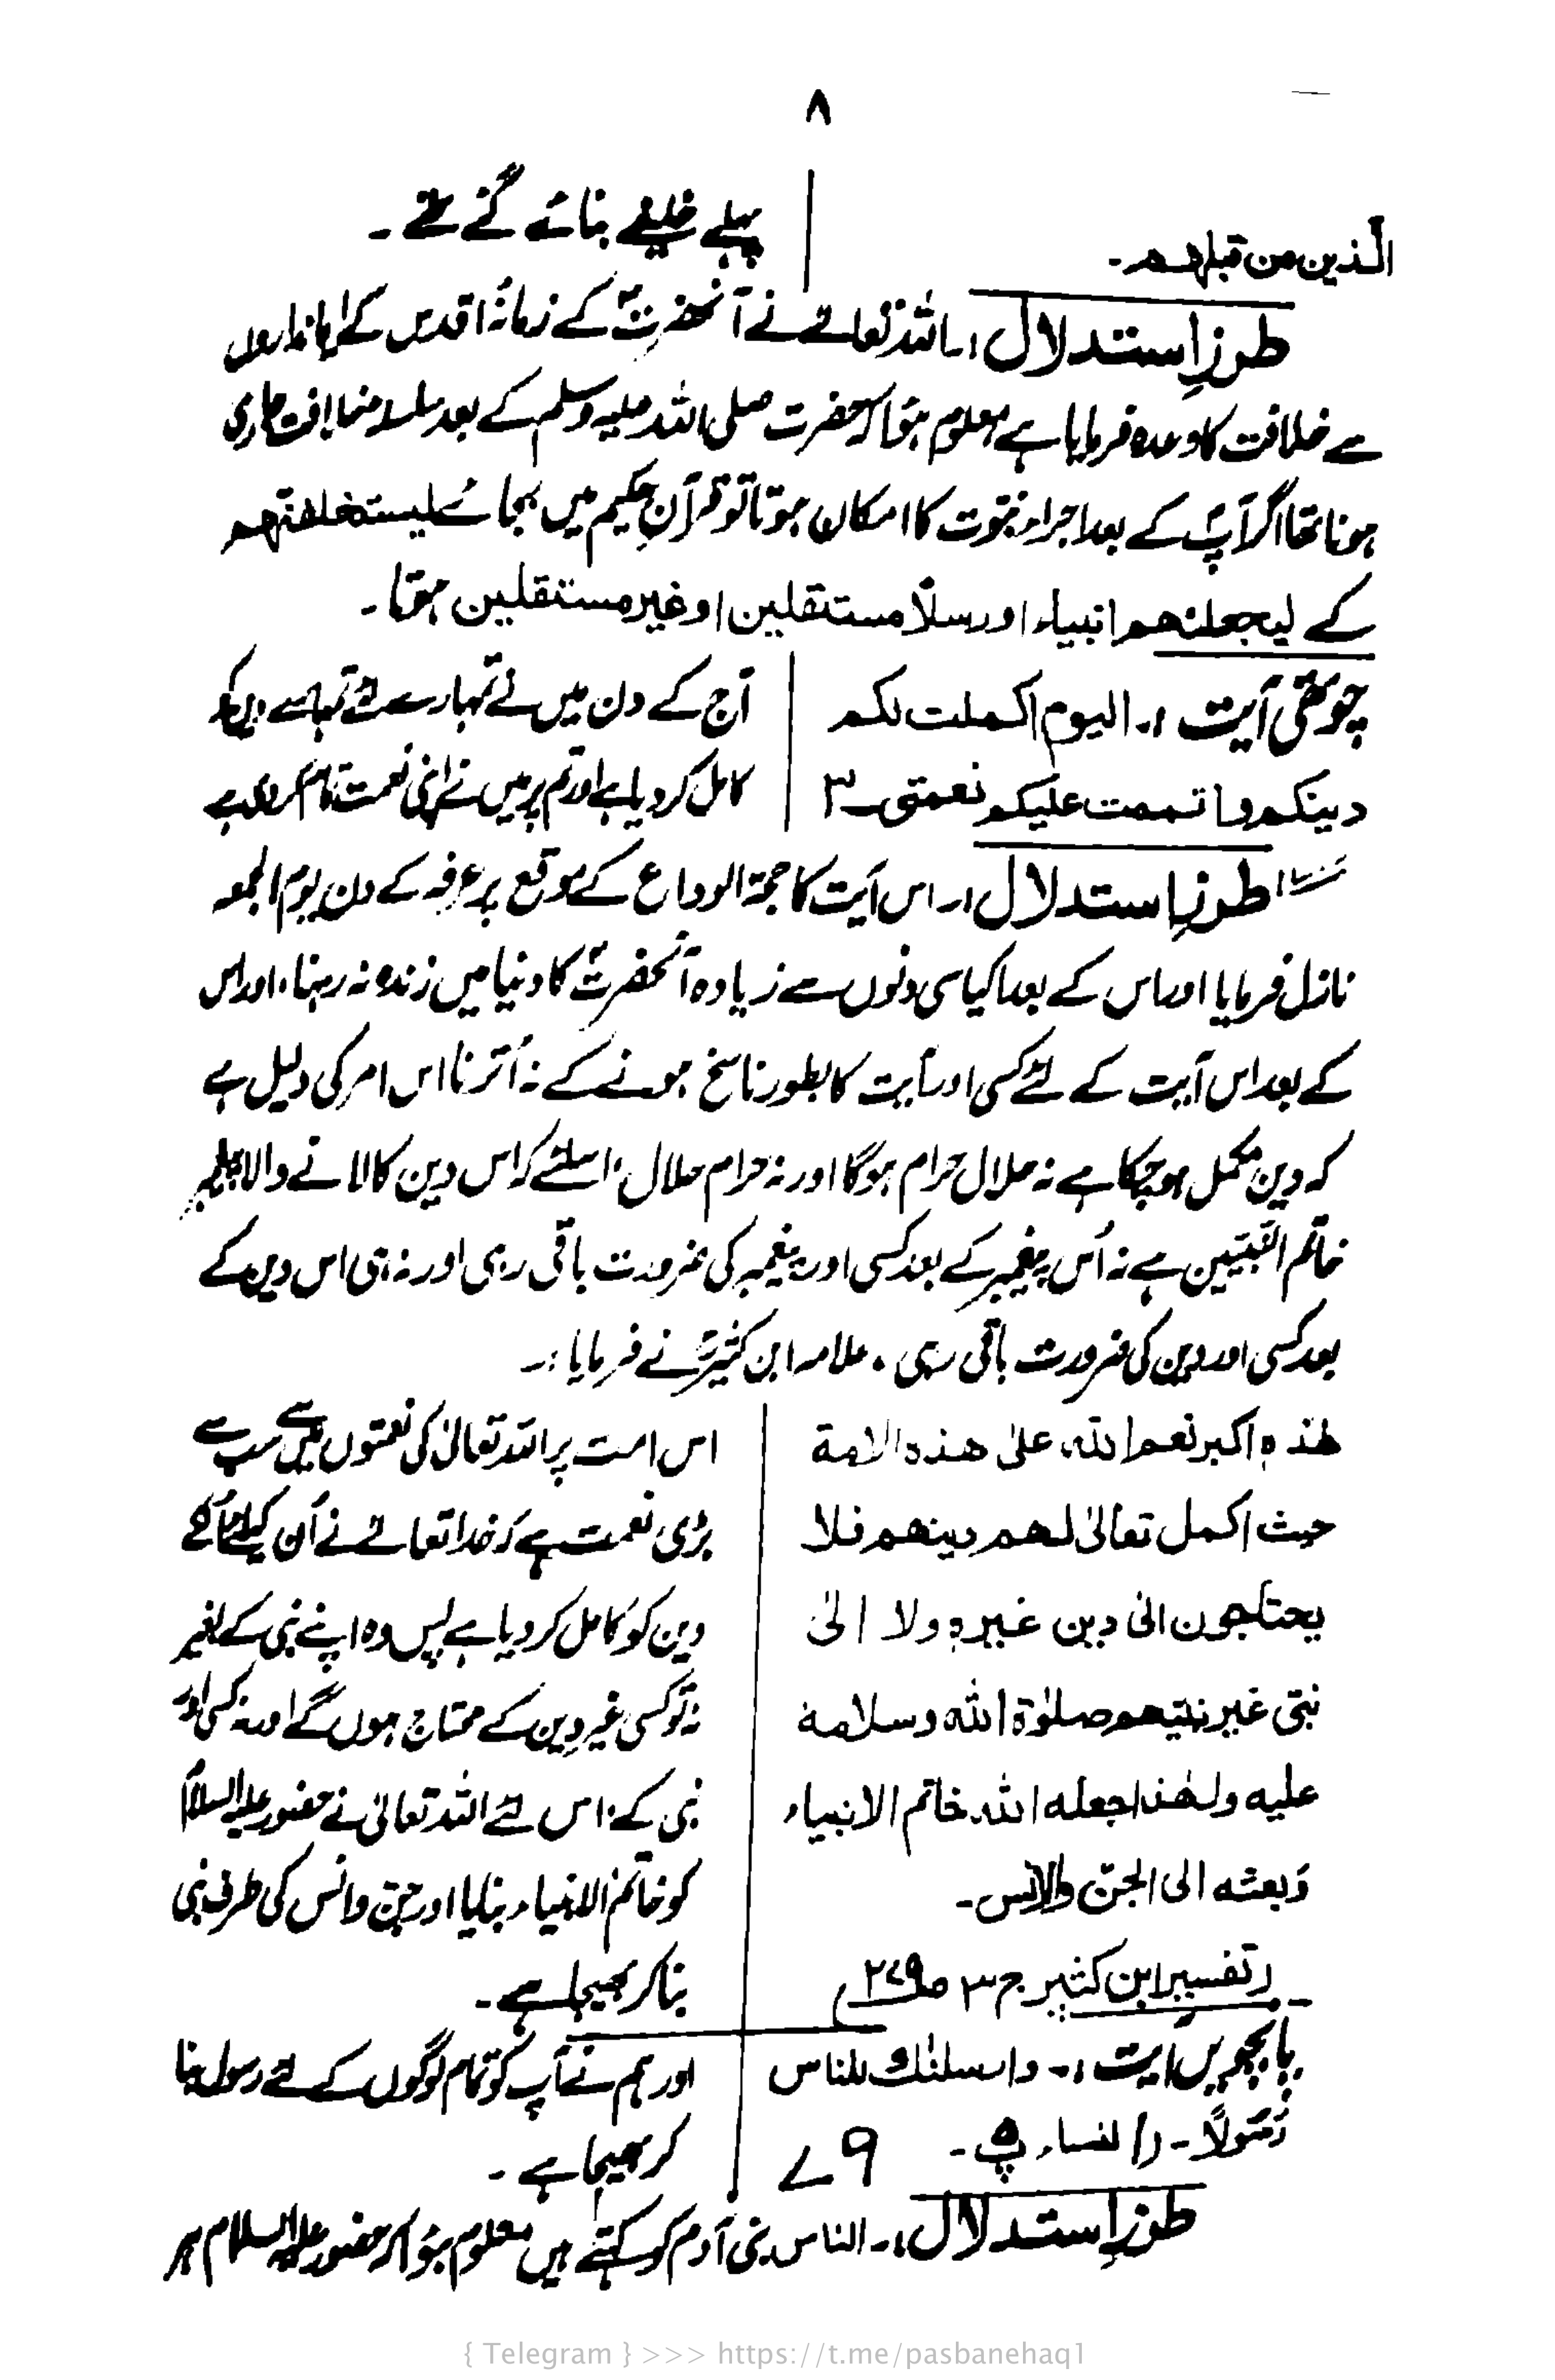 ۸
الّذین من قبلہم۔
پہلے خلیفے بنائے گئے تھے۔
طرزِ استدلال :۔ اللہ تعالےٰ نے آنحضرتؐ کے زمانۂ اقدس کے ایمانداروں
سے خلافت کا وعدہ فرمایا ہے معلوم ہؤا کہ حضرت صلی اللہ علیہ وسلم کے بعد سلسلہ خلافت جاری
ہونا تھا اگر آپؐ کے بعد اجراء نبوت کا امکان ہوتا تو قرآنِ حکیم میں بجائے لیستخلفنھم
کے لیجعلنھم انبیاء اور رسلًا مستقلین او غیر مستقلین ہوتا۔
چوتھی آیت :۔ الیوم اکملت لکم
دینکم واتممت علیکم نعمتی ۳
آج کے دن میں نے تمہارے لئے تمہارے دین کو
کامل کر دیا ہے اور تم پر میں نے اپنی نعمت تمام کر دی ہے
طرزِ استدلال :۔ اس آیت کا حجۃ الوداع کے موقع پر عرفہ کے دن یوم الجمعہ
نازل فرمایا اور اس کے بعد اکیاسی دنوں سے زیادہ آنحضرتؐ کا دنیا میں زندہ نہ رہنا، اور اس
کے بعد اس آیت کے لئے کسی اور آیت کا بطور ناسخ ہونے کے نہ اُترنا اس امر کی دلیل ہے
کہ دین مکمل ہو چکا ہے نہ حلال حرام ہوگا اور نہ حرام حلال، اسلئے کہ اس دین کا لانے والا پیغمبر
خاتم النّبیّین ہے نہ اُس پیغمبر کے بعد کسی اور پیغمبر کی ضرورت باقی رہی اور نہ ہی اس دین کے
بعد کسی اور دین کی ضرورت باقی رہی ۔ علامہ ابن کثیرؒ نے فرمایا :۔
ھٰذہٖ اکبر نعم اللہ علیٰ ھذہ الامۃ
حیث اکمل تعالیٰ لھم دینھم فلا
یحتاجون الیٰ دین غیرہٖ ولا الیٰ
نبیّ غیر نبیّھم صلوٰۃ اللہ وسلامہ
علیہ ولھٰذا جعلہ اللہ خاتم الانبیاء
وَبعثہ الی الجنّ والانس۔
(تفسیر ابن کثیر ج ۳ ص۲۷۹)
اس امت پر اللہ تعالیٰ کی نعمتوں میں سے سب سے
بڑی نعمت ہے کہ خدا تعالےٰ نے اُن کیلئے اُنکے
دین کو کامل کر دیا ہے پس وہ اپنے نبی کے بغیر
نہ تو کسی غیر دین کے محتاج ہوں گے اور نہ کسی اور
نبی کے، اس لئے اللہ تعالیٰ نے حضور علیہ السلام
کو خاتم الانبیاء بنایا اور جنّ و انس کی طرف نبی
بنا کر بھیجا ہے۔
پانچویں آیت :۔ وارسلنٰک للناس
رَسُولًا۔ (النساء پ ۵۔
۷۹
اور ہم نے آپ کو تمام لوگوں کے لئے رسول بنا
کر بھیجا ہے۔
طرزِ استدلال :۔ الناس بنی آدم کو کہتے ہیں معلوم ہؤا کہ حضور علیہ السلام ہر
{ Telegram } >>> https://t.me/pasbanehaq1